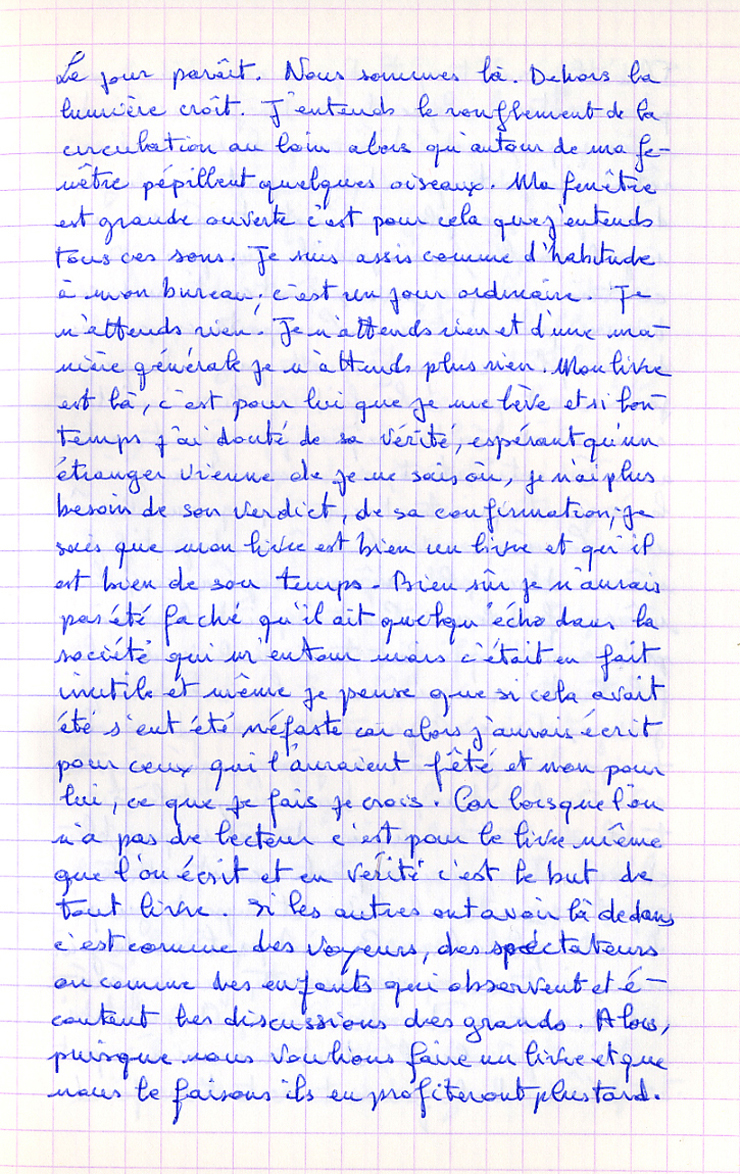 Le jour paraît. Nous sommes là. Dehors la
lumière croît. J'entends le ronflement de la
circulation au loin alors qu'autour de ma fe-
nêtre pépillent quelques oiseaux. Ma fenêtre
est grande ouverte c'est pour cela que j'entends
tous ces sons. Je suis assis comme d'habitude
à mon bureau; c'est un jour ordinaire. Je
n'attends rien. Je n'attends rien et d'une ma-
nière générale je n'attends plus rien. Mon livre
est là, c'est pour lui que je me lève et si lon-
temps j'ai douté de sa vérité, espérant qu'un
étranger vienne de je ne sais où, je n'ai plus
besoin de son verdict, de sa confirmation; je
sais que mon livre est bien un livre et qu'il
est bien de son temps. Bien sûr je n'aurais
pas été faché qu'il ait quelqu'écho dans la
société qui m'entour mais c'était en fait
inutile et même je pense que si cela avait
été s'eut été néfaste car alors j'aurais écrit
pour ceux qui l'auraient fêté et non pour
lui, ce que je fais je crois. Car lorsque l'on
n'a pas de lecteur c'est pour le livre même
que l'on écrit et en vérité c'est le but de
tout livre. Si les autres ont a voir là dedans
c'est comme des voyeurs, des spectateurs
ou comme des enfants qui observent et é-
coutent les discussions des grands. Alors,
puisque nous voulions faire un livre et que
nous le faisons ils en profiteront plus tard.